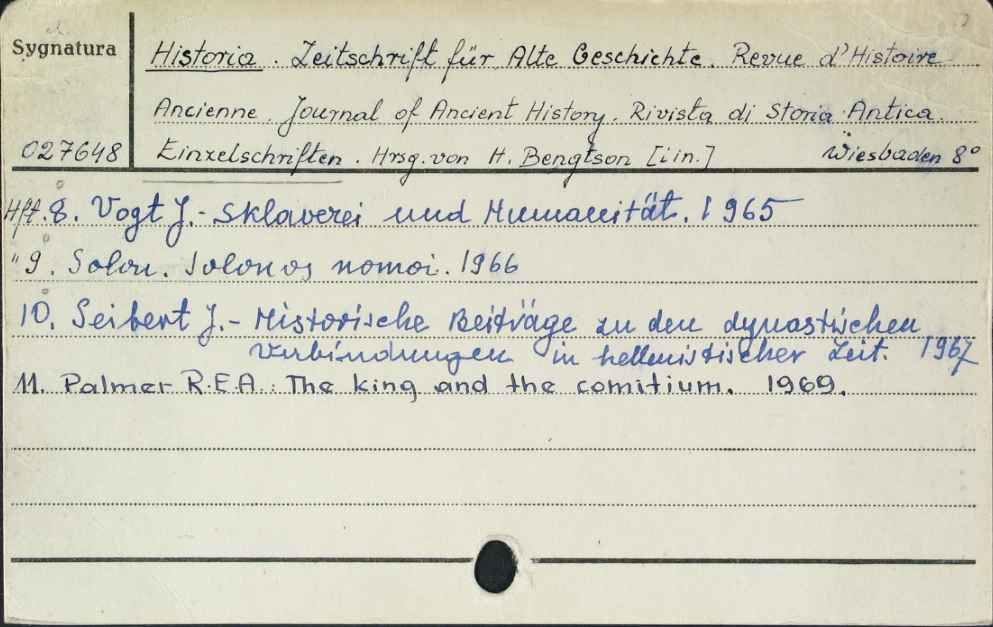 Sygnatura
Historia. Zeitschrift für Alte Geschichte. Revue d'Histoire
Ancienne. Journal of Ancient History. Rivista di Storia Antica.
027648
Einzelschriften. Hrsg. von H. Bengtson [i in.] Wiesbaden 8°
Hft. 8. Vogt J.- Sklaverei und Humanität. 1965
" 9. Solon. Solonos nomoi. 1966
10. Seibert J.- Historische Beiträge zu den dynastischen
Verbindungen in hellenistischer Zeit. 1967
11. Palmer R.E.A.: The king and the comitium. 1969.